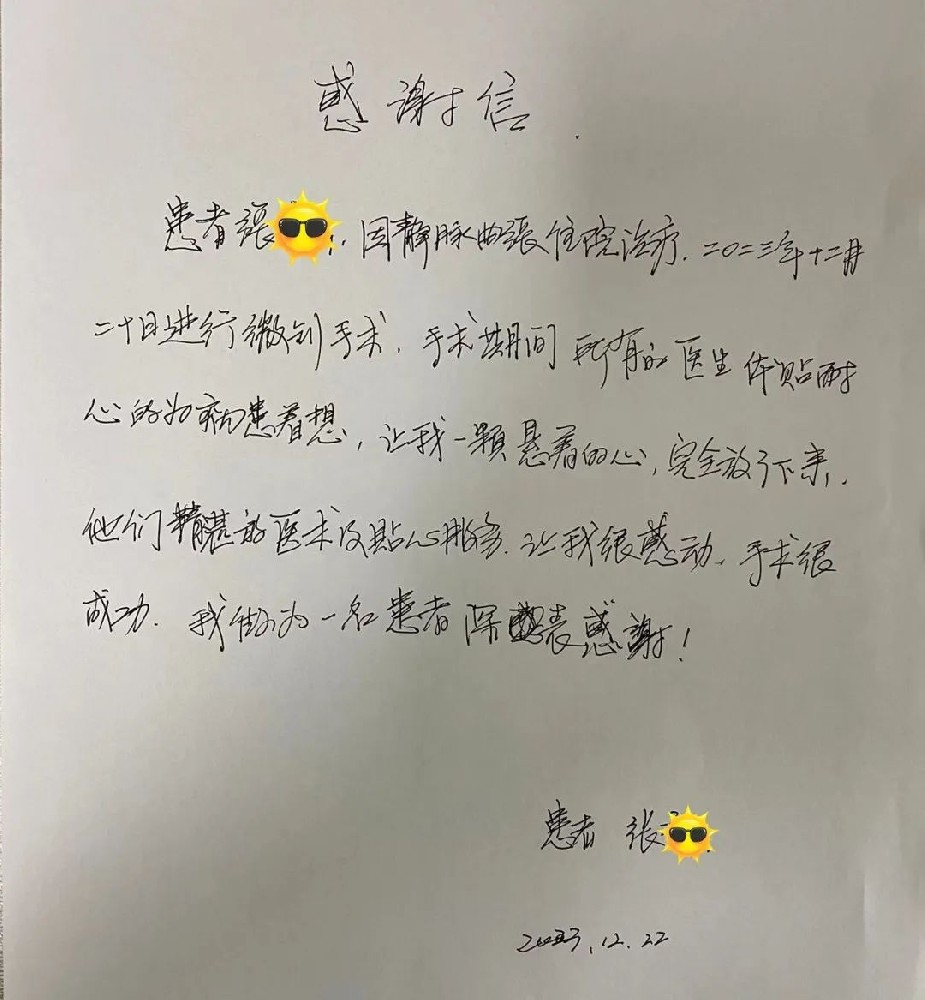 感谢信
患者張 因静脉曲張住院治疗.二〇二三年十二月
二十日进行微创手术.手术期间所有的医生体贴耐
心的为病患着想,让我一颗悬着的心,完全放了下来.
他们精湛的医术及贴心服务.让我很感动.手术很
成功.我做为一名患者深表感謝!
患者 张
2023.12.22